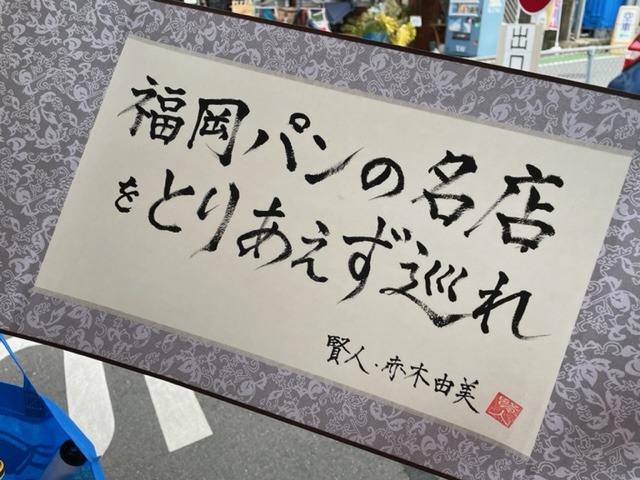 福岡パンの名店
をとりあえず巡れ
賢人・赤木由美
出口